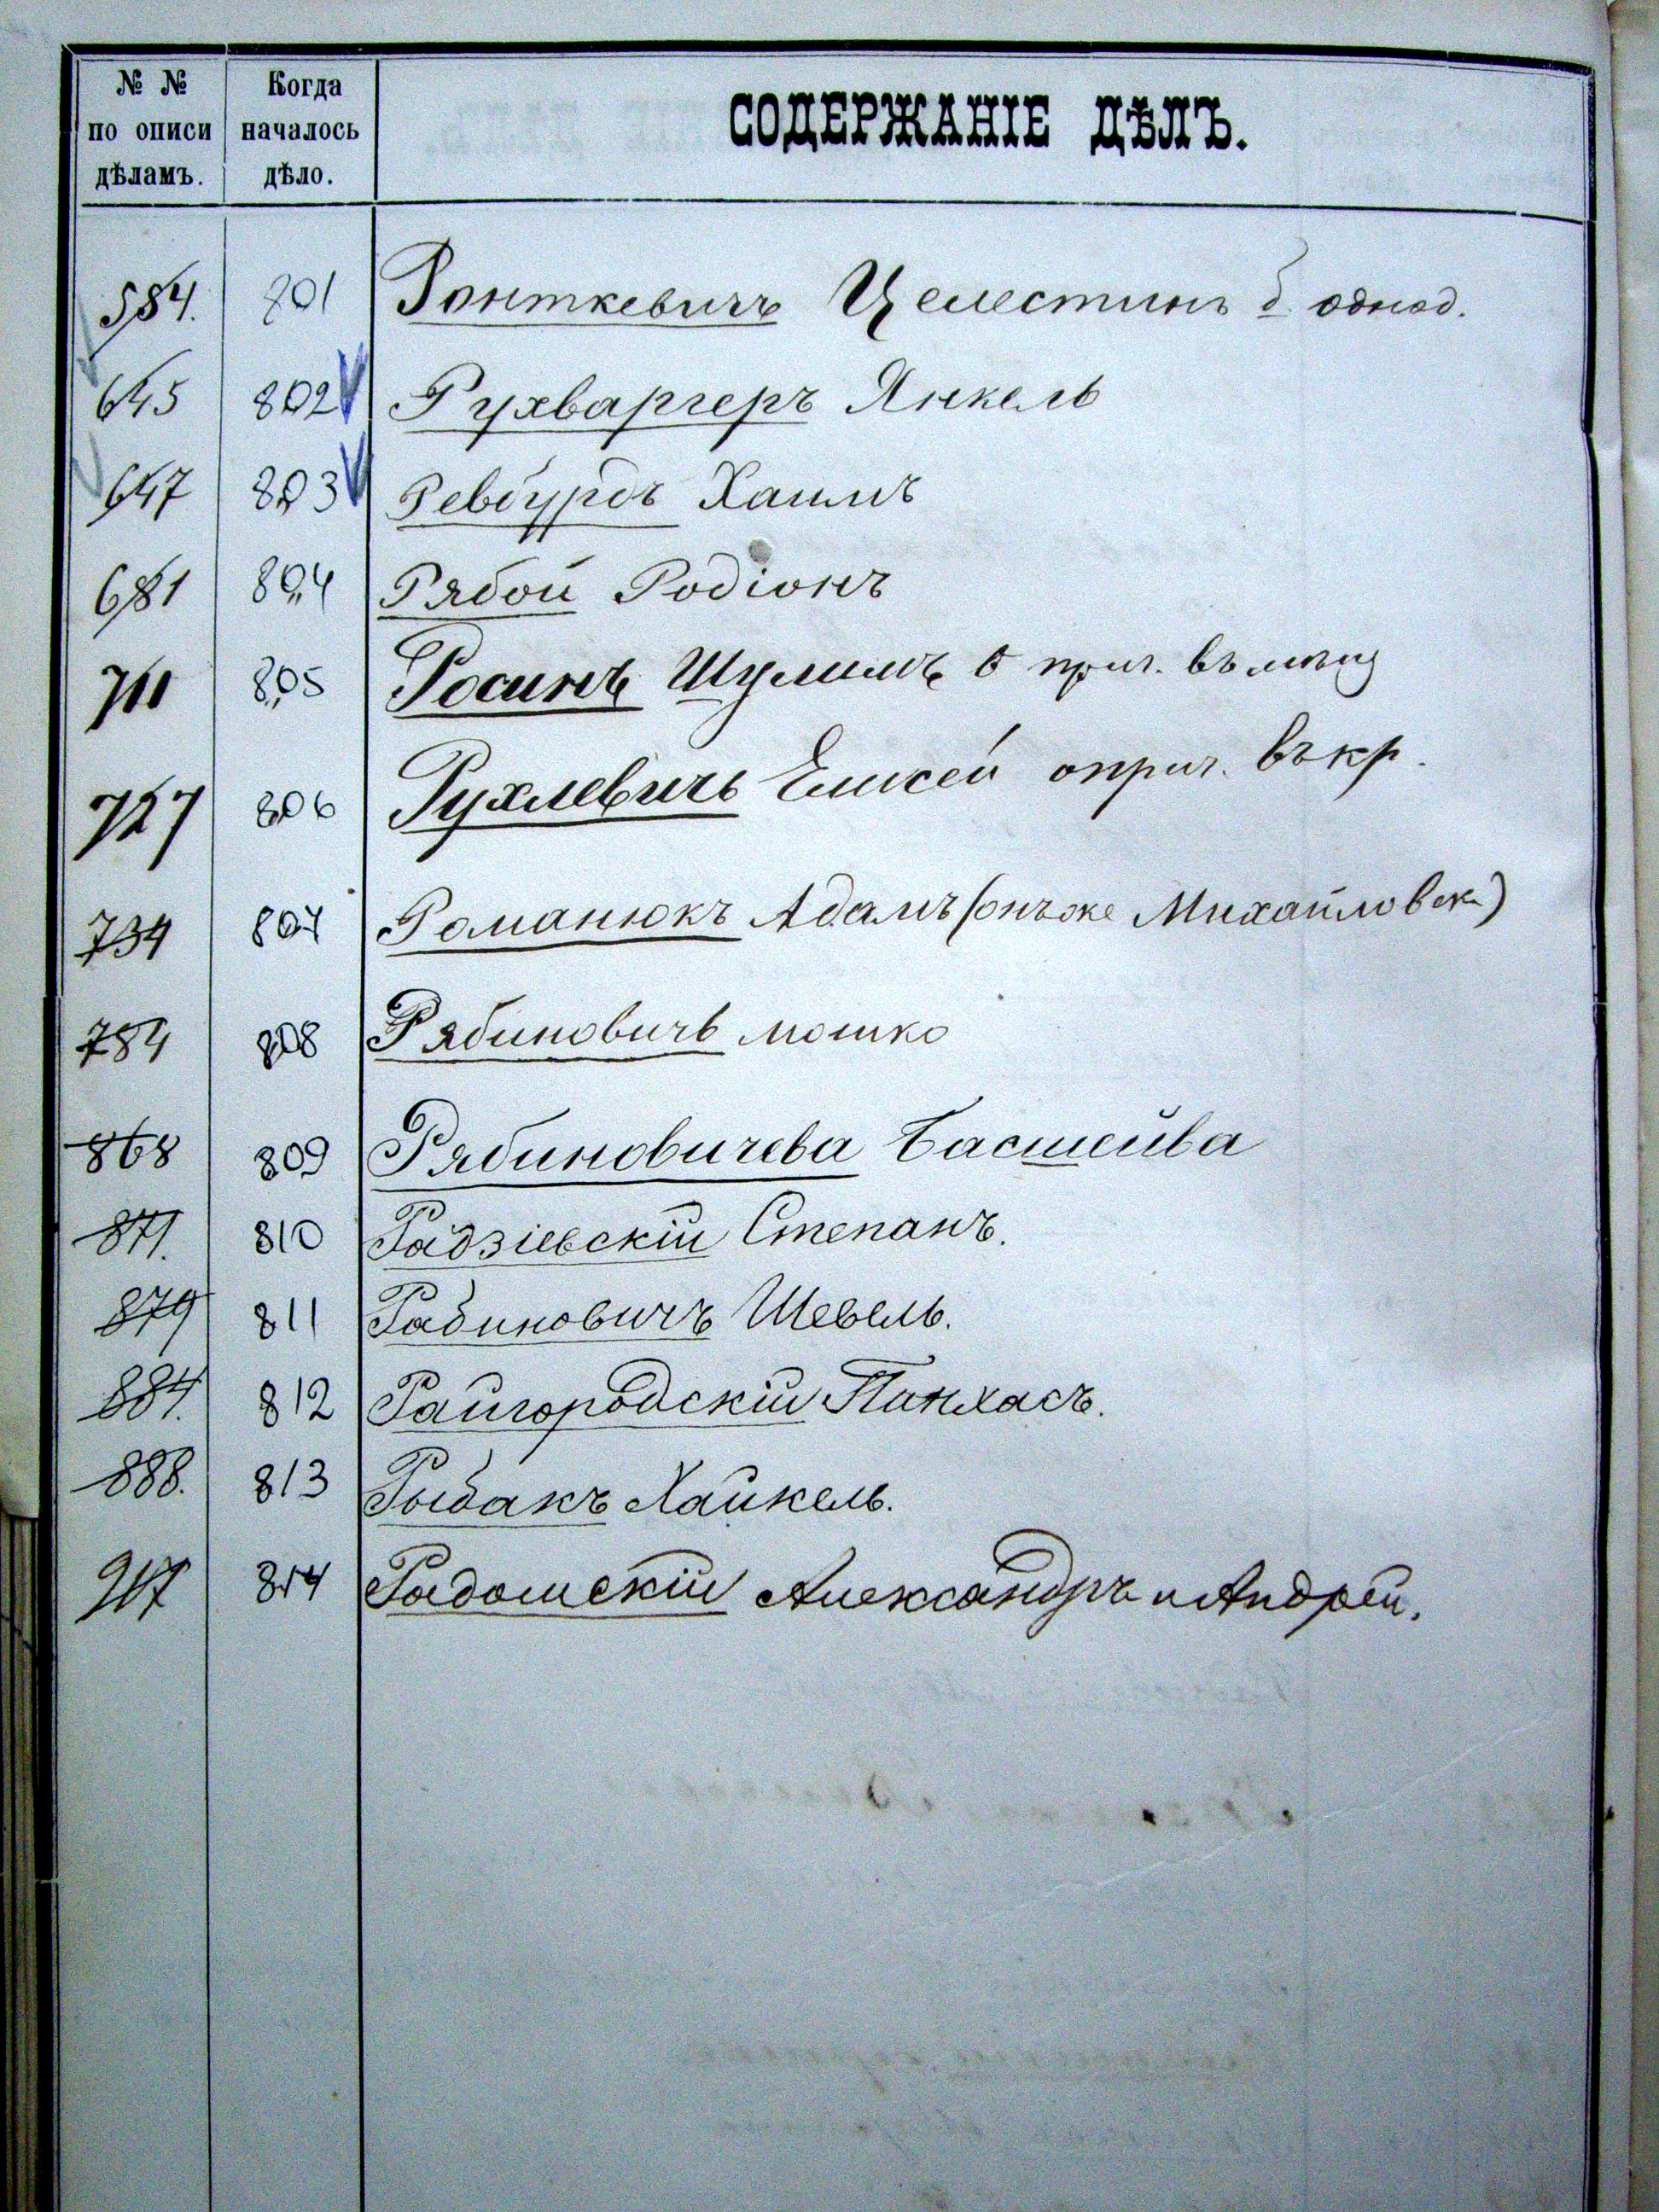 № № по описи дѣламъ.
Когда началось дѣло.
СОДЕРЖАНІЕ ДѢЛЪ.
584. 801 Ронткевичъ Целестинъ б. однод.
645 802 Рухваргеръ Янкель
647 803 Ревбурдъ Хаимъ
681 804 Рябой Родіонъ
711 805 Росинъ Шулимъ о прич. въ мѣщ
727 806 Рухлевичъ Елисей о прич. въ кр.
734 807 Романюкъ Адамъ (онъ же Михайловск)
784 808 Рябиновичъ Мошко
868 809 Рябиновичева Басшейва
871. 810 Радзіевскій Степанъ.
879 811 Рабиновичъ Шевель.
884. 812 Райгородскій Пинхасъ.
888. 813 Рыбакъ Хайкель.
917 814 Радомскій Александръ и Андрей.